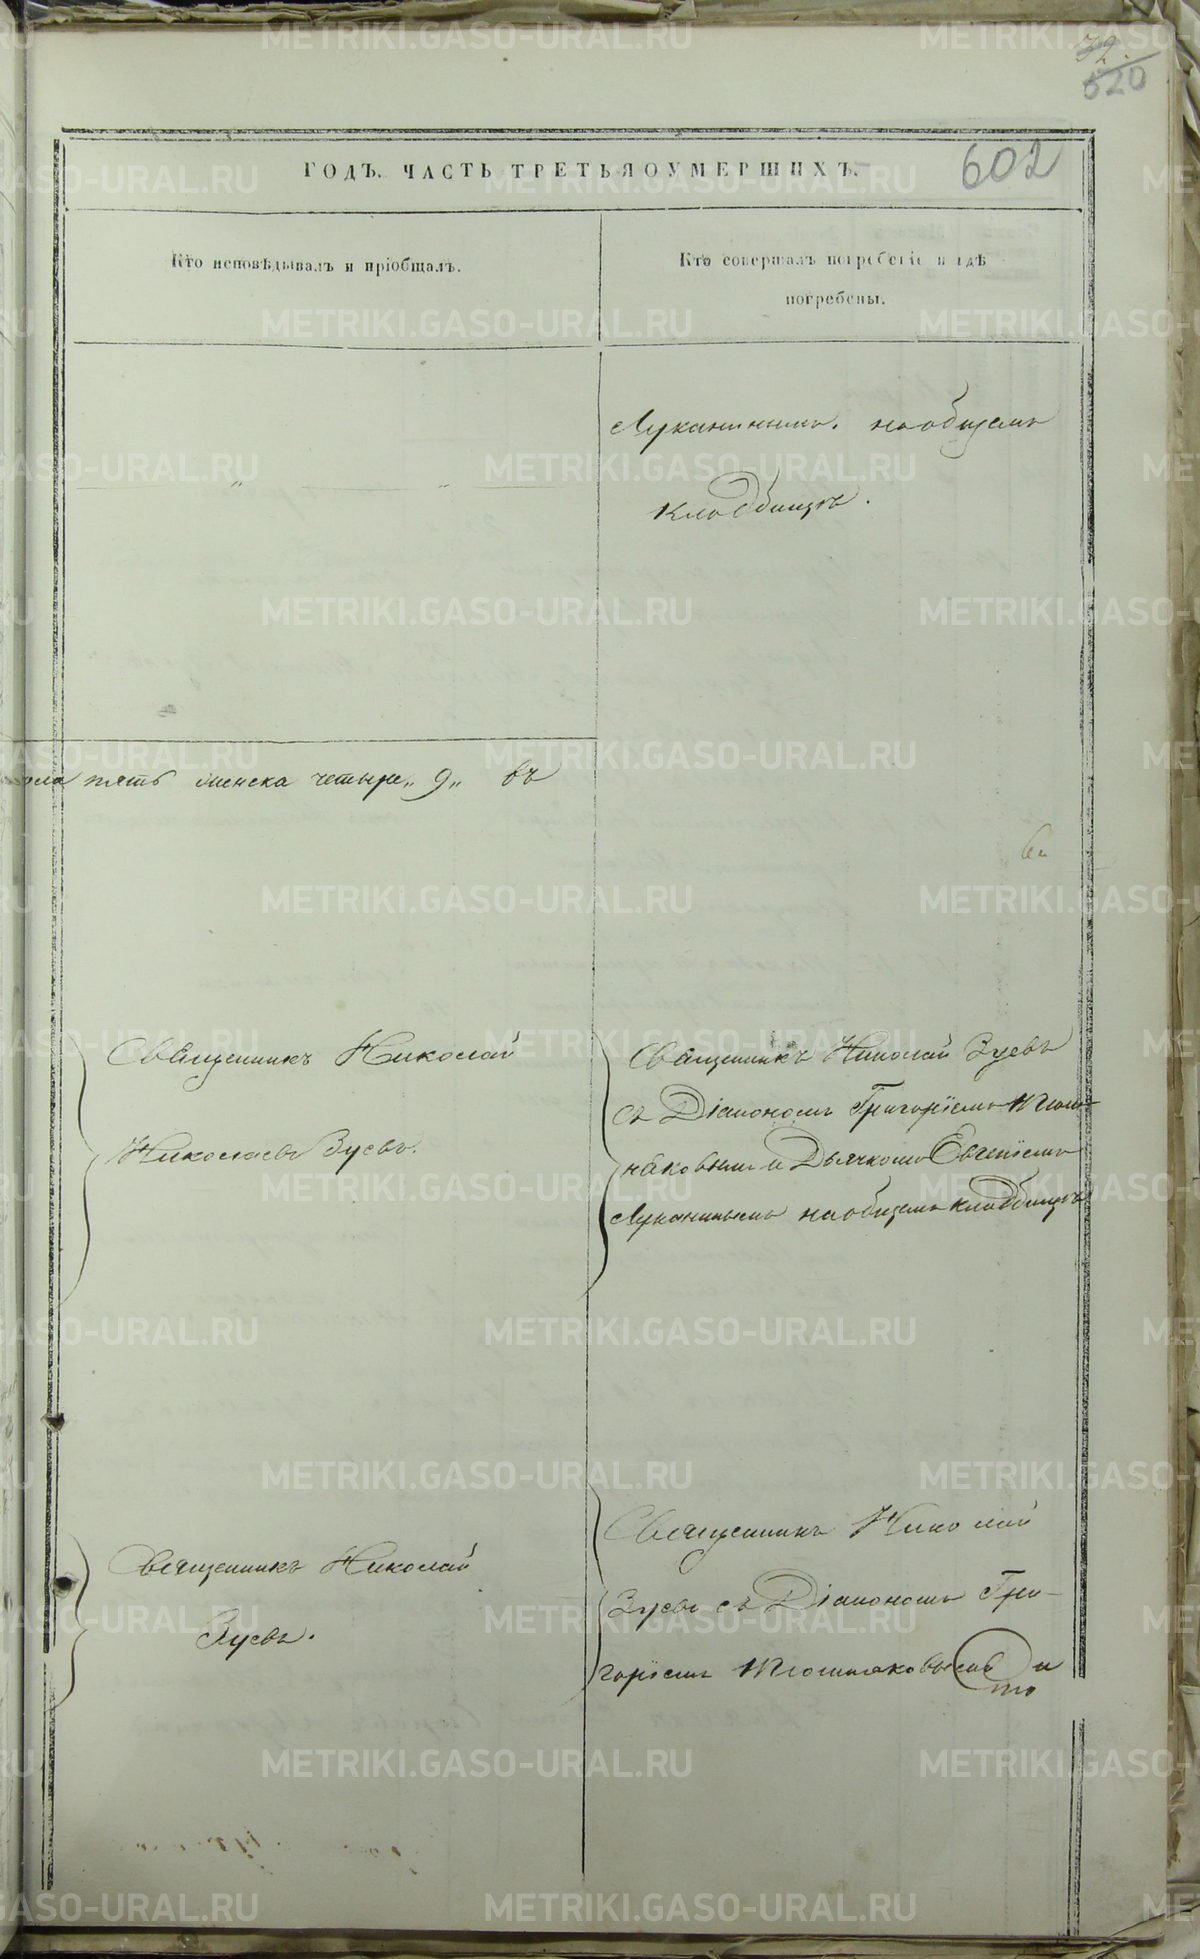 32.
520
602
ГОДЪ. ЧАСТЬ ТРЕТЬЯ О УМЕРШИХЪ.
Кто исповѣдывалъ и пріобщалъ.
Кто совершалъ погребеніе и гдѣ
погребены.
Луканинымъ. на общемъ
кладбищѣ.
пола пять женска четыре „9„ въ
Священникъ Николай
Николаевъ Зуевъ.
Священникъ Николай Зуевъ
съ Діакономъ Григоріемъ
и Дьячкомъ Евгеніемъ
Луканинымъ на общемъ кладбищѣ
Священникъ Николай
Зуевъ.
Священникъ Николай
Зуевъ съ Діакономъ Гри-
горіемъ и
METRIKI.GASO-URAL.RU